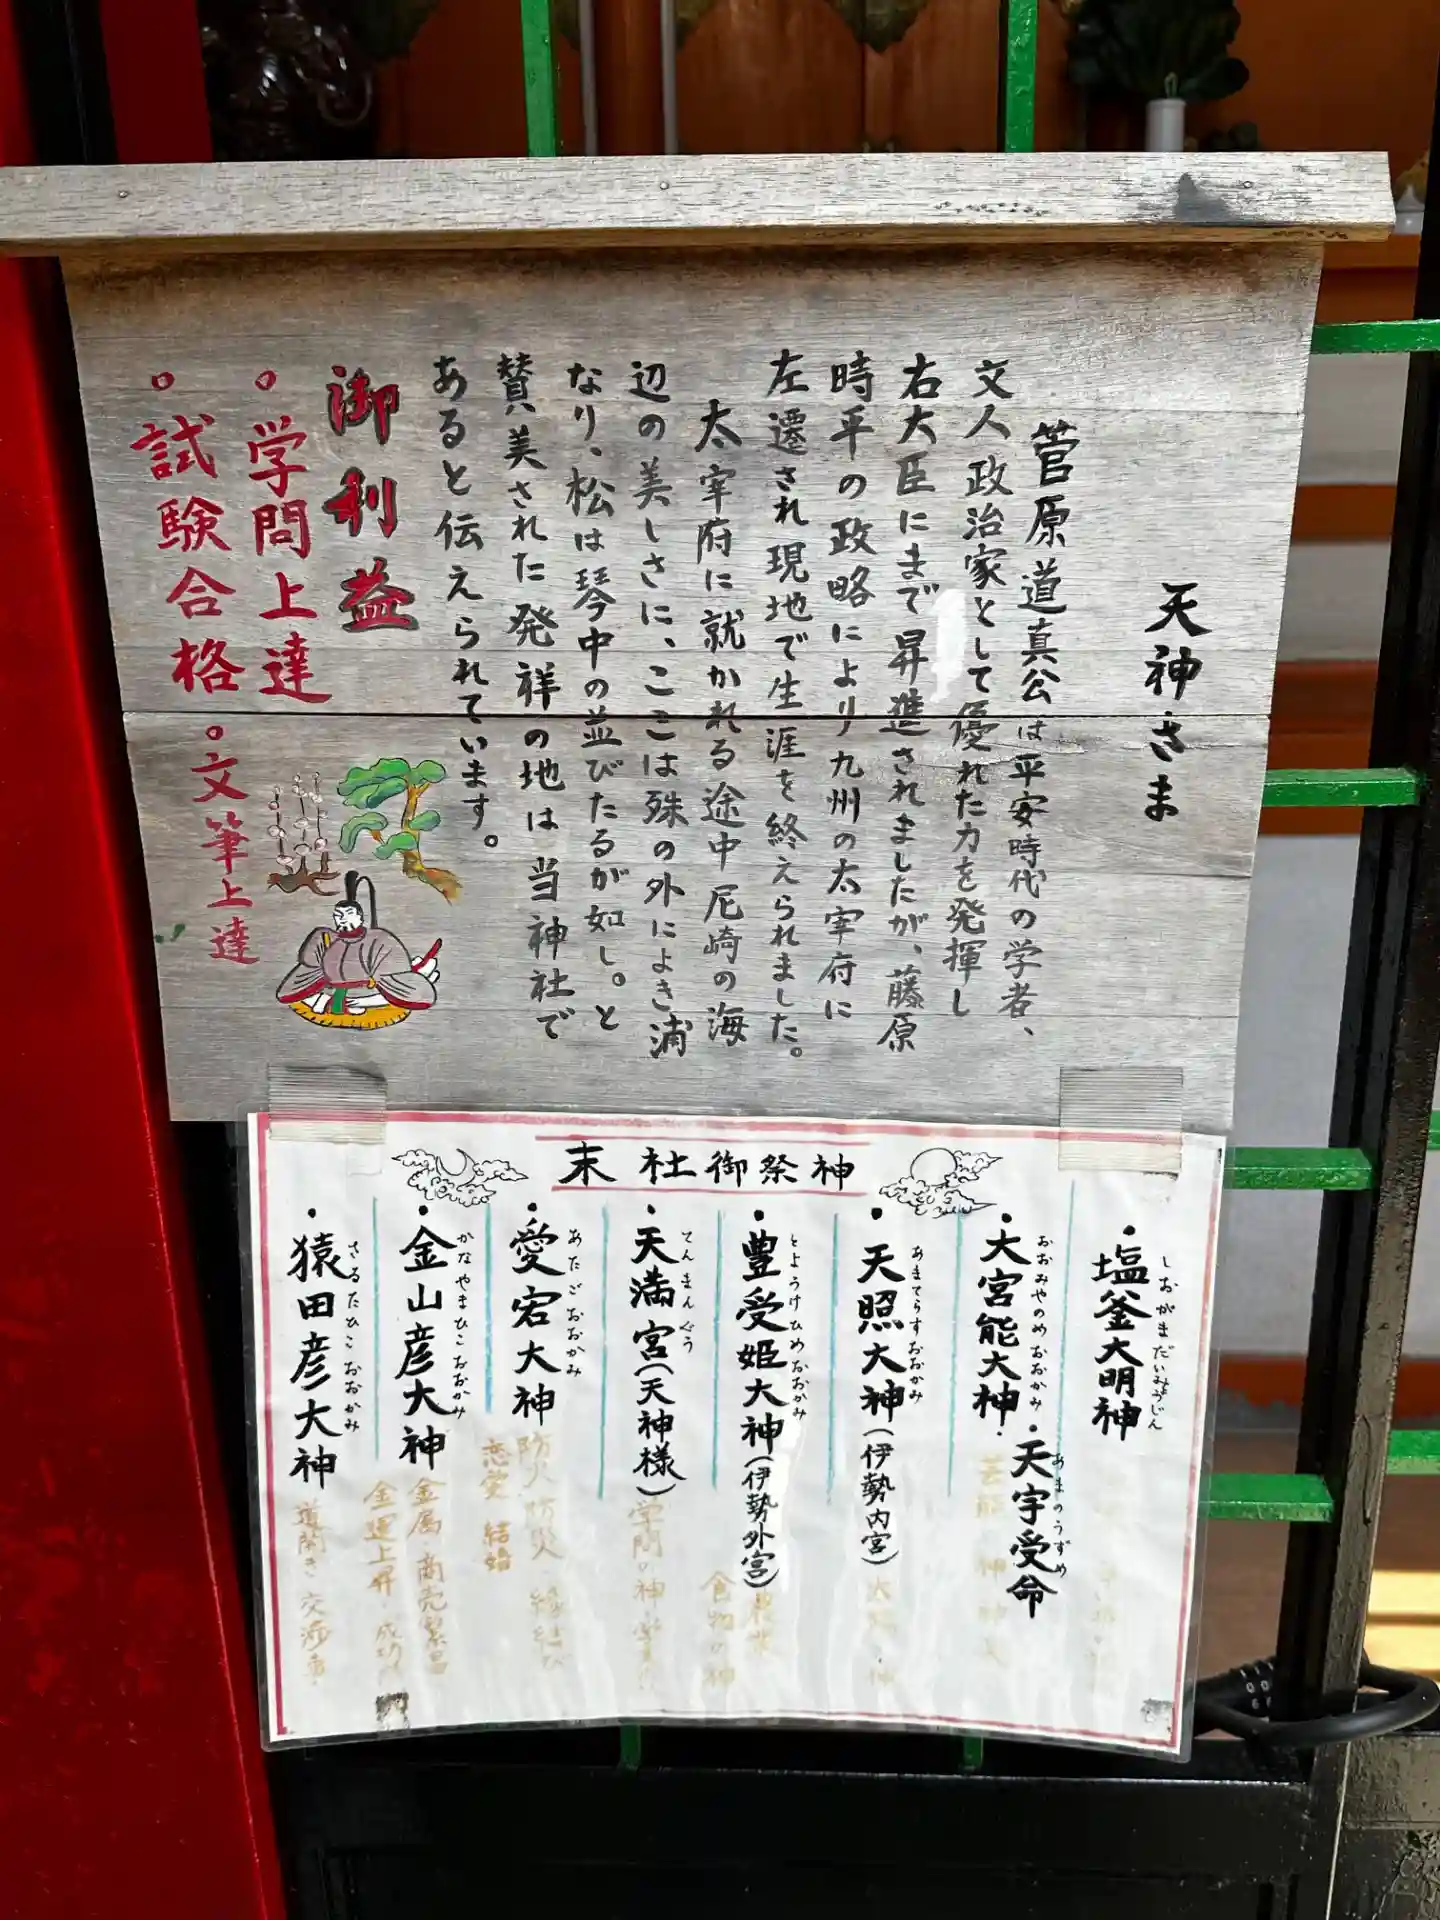 天神さま
菅原道真公は平安時代の学者、
文人政治家として優れた力を発揮し
右大臣にまで昇進されましたが、藤原
時平の政略により九州の太宰府に
左遷され現地で生涯を終えられました。
太宰府に就かれる途中尼崎の海
辺の美しさに、ここは殊の外によき浦
なり、松は琴中の並びたるが如し。と
賛美された発祥の地は当神社で
あると伝えられています。
御利益
。学問上達
。試験合格
。文筆上達
末社御祭神
・塩釜大明神
しおがまだいみょうじん
・大宮能大神・
おおみやのめおおかみ
・天宇受命
あまのうずめ
芸能
・天照大神(伊勢内宮)
あまてらすおおかみ
・豊受姫大神(伊勢外宮)
とようけひめおおかみ
食物の神
・天満宮(天神様)
てんまんぐう
学問の神
・愛宕大神
あたごおおかみ
防火 防災 縁結び
恋愛 結婚
・金山彦大神
かなやまひこおおかみ
金属・商売繁昌
金運上昇・成功
・猿田彦大神
さるたひこおおかみ
道開き 交渉